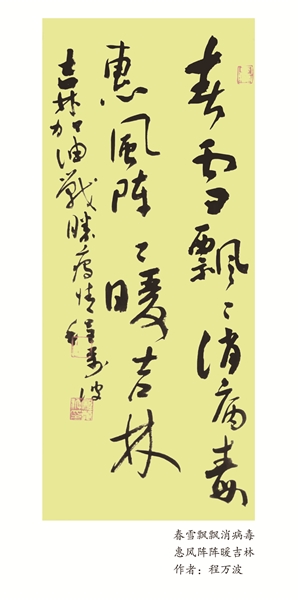 春雪飘飘消病毒
惠风阵阵暖吉林
吉林加油战胜疫情程万波
春雪飘飘消病毒
惠风阵阵暖吉林
作者：程万波